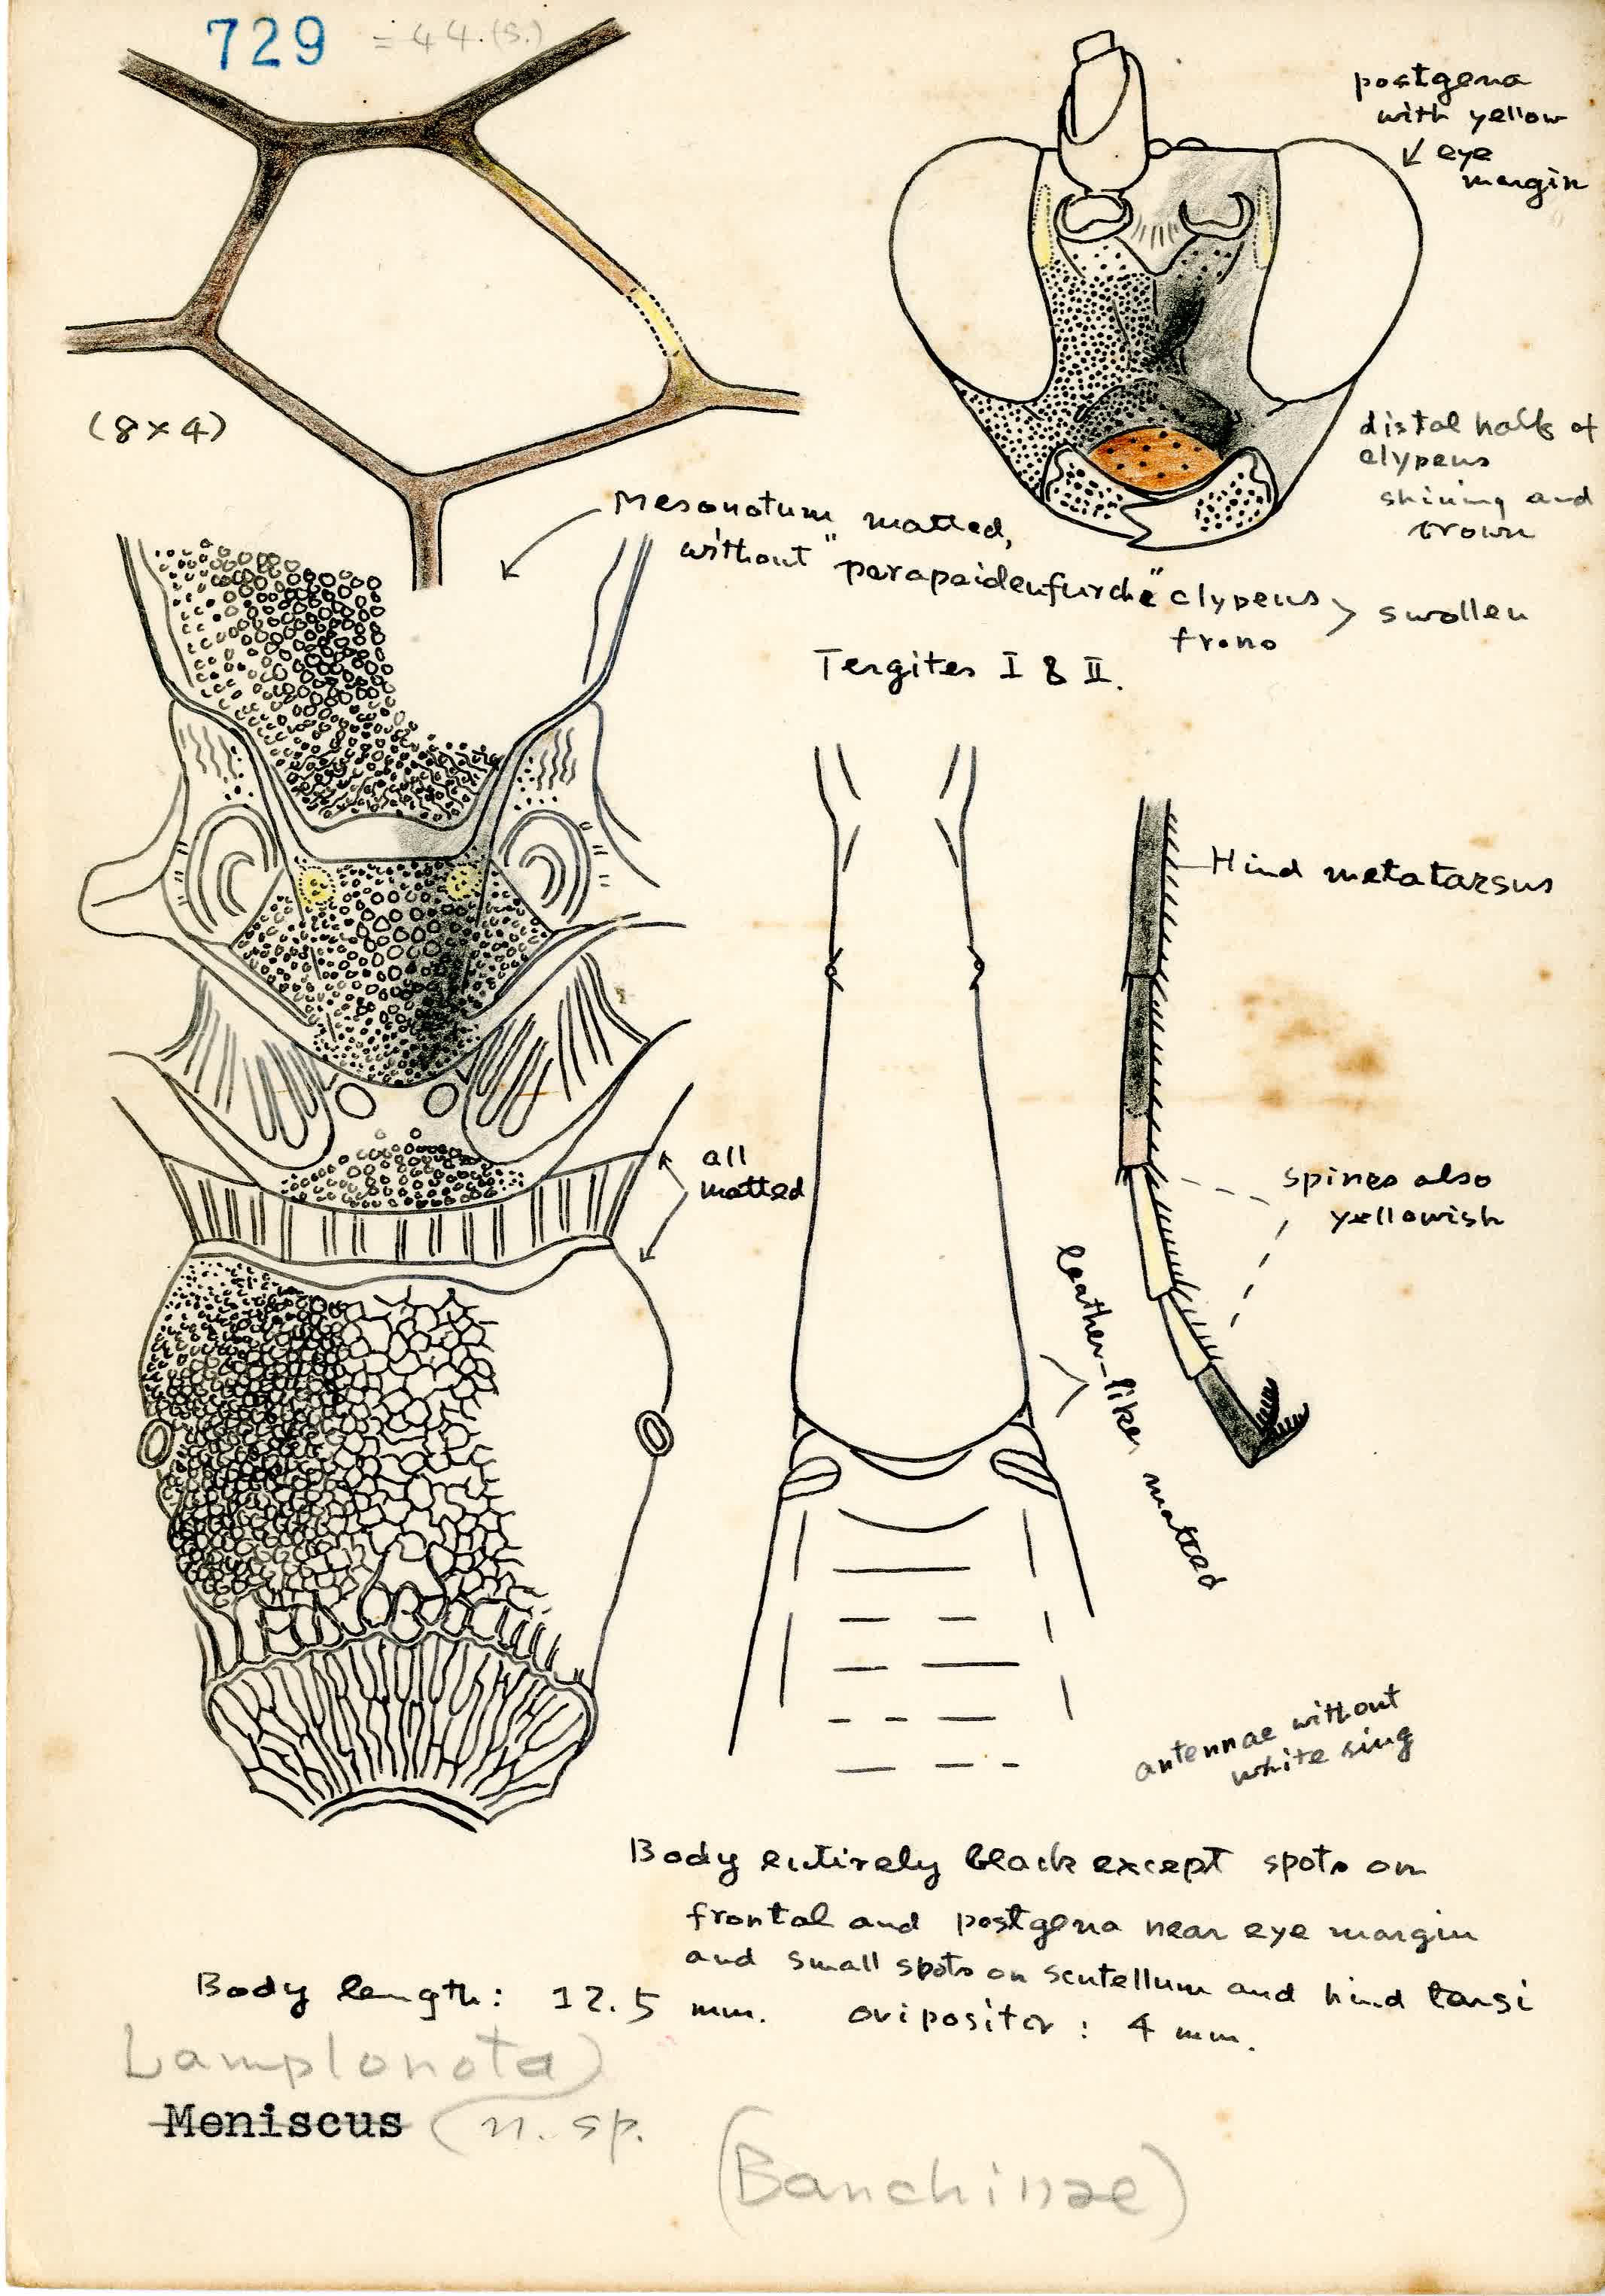 729 = 44.(S.)
postgena
with yellow
eye
margin
(8×4)
distal half of
clypeus
shining and
brown
Mesonotum matted,
without "parapsidenfurche"
clypeus
frons
> swollen
Tergites I & II.
Hind metatarsus
all
matted
spines also
yellowish
leather-like, matted
antennae without
white ring
Body entirely black except spots on
frontal and postgena near eye margin
and small spots on scutellum and hind tarsi
Body length: 12.5 mm. ovipositor: 4 mm.
Lamplonota
Meniscus n. sp.
(Banchinae)